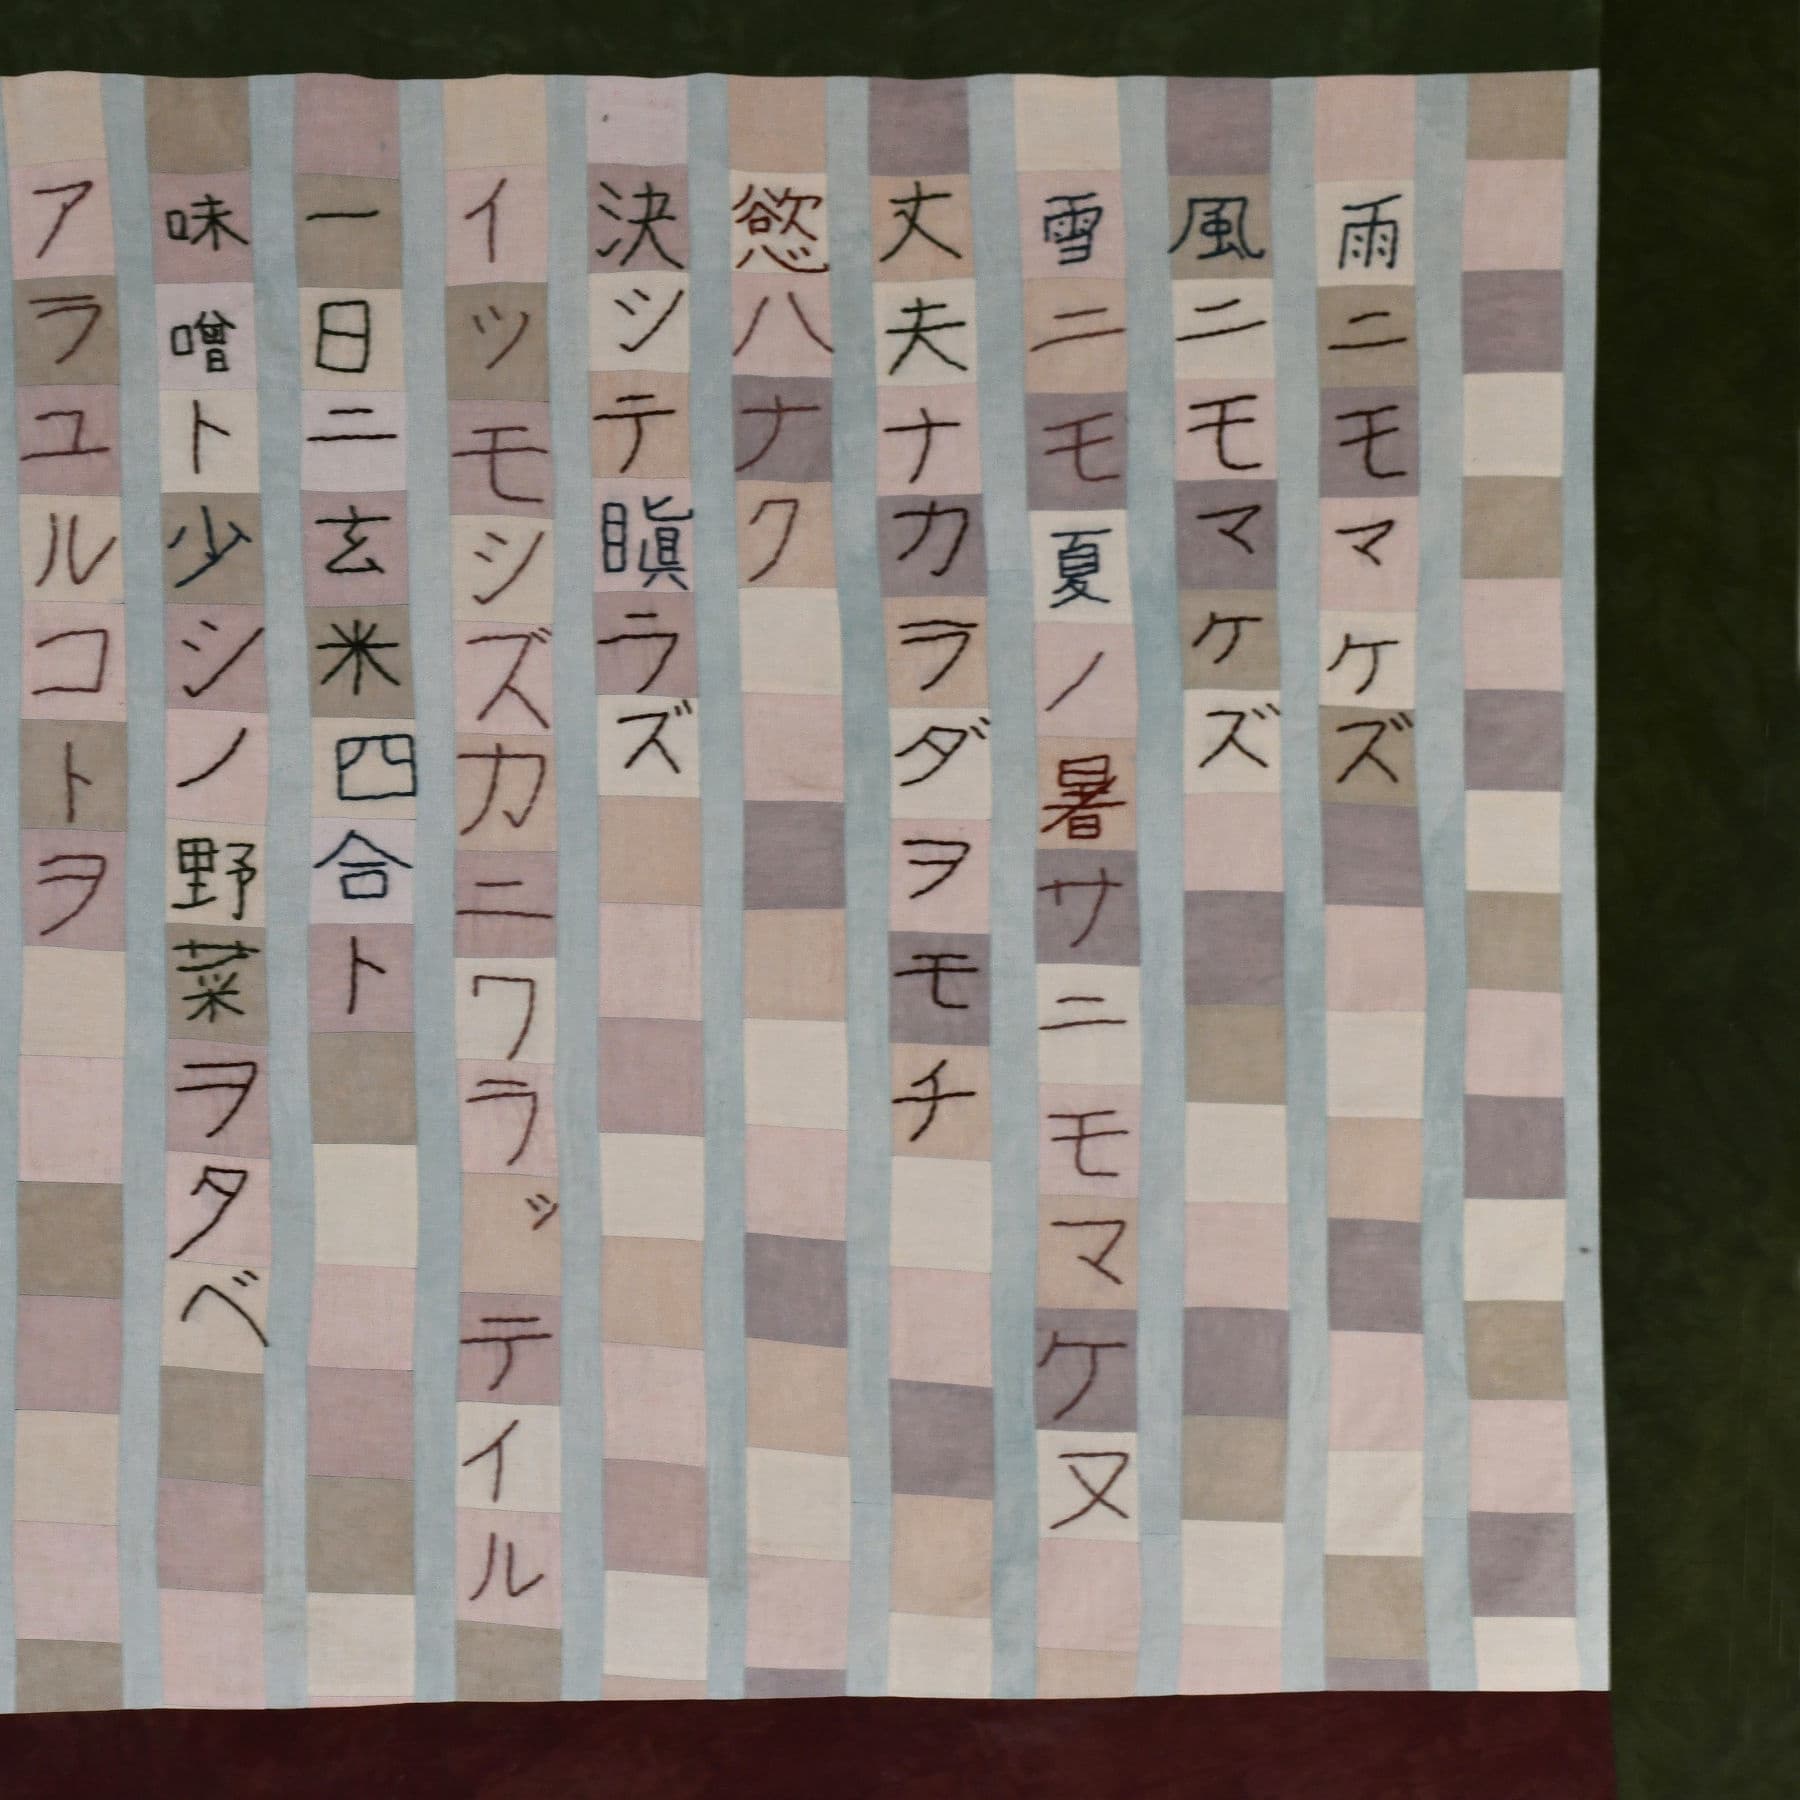 雨ニモマケズ
風ニモマケズ
雪ニモ夏ノ暑サニモマケヌ
丈夫ナカラダヲモチ
慾ハナク
決シテ瞋ラズ
イツモシズカニワラッテイル
一日ニ玄米四合ト
味噌ト少シノ野菜ヲタベ
アラユルコトヲ